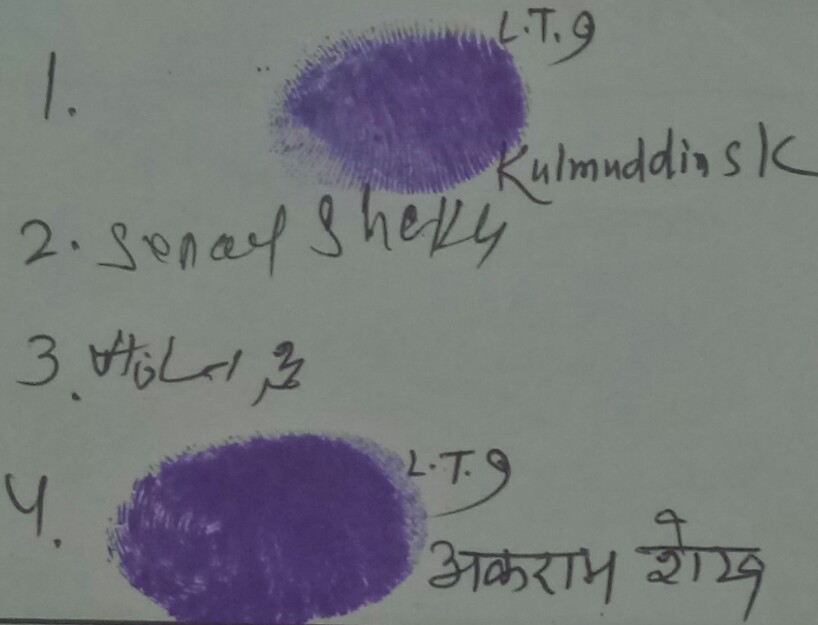 1. L.T.g
Kulmuddin SK
2. Shekh
3.
4. L.T.g
अकराम शेख